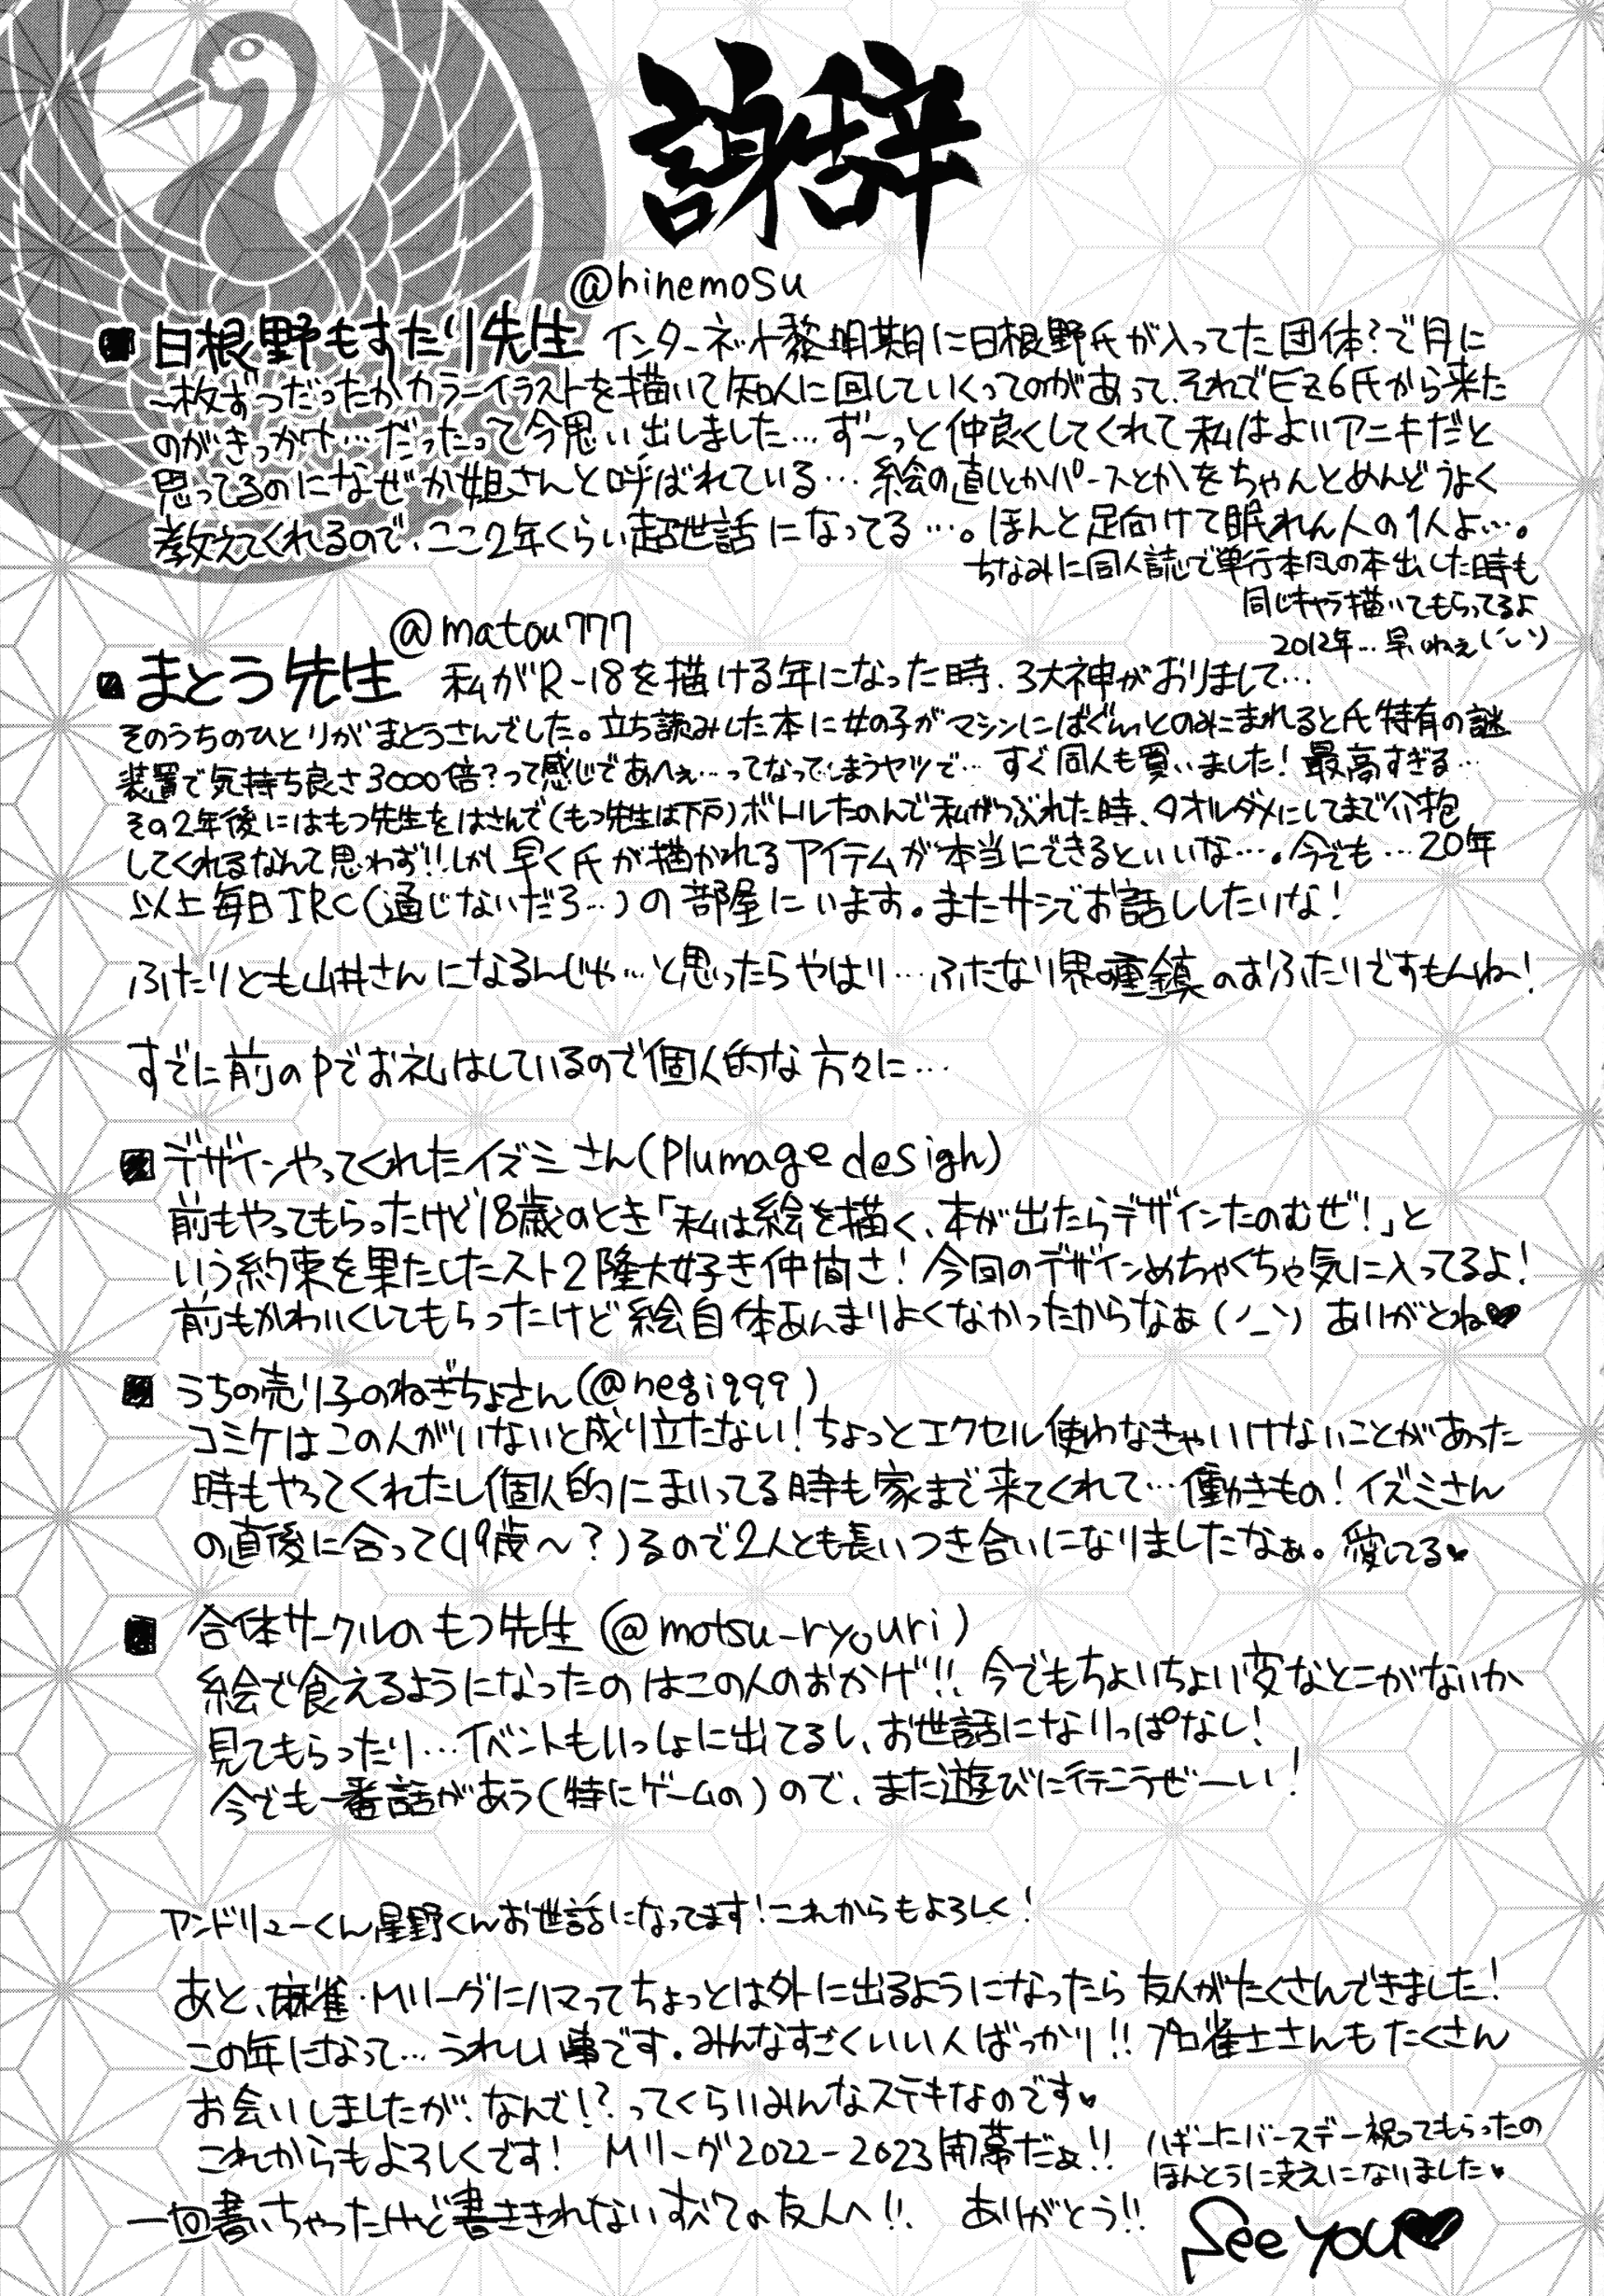 謝辞
@hinemosu
■日根野もすたり先生 インターネット黎明期に日根野氏が入ってた団体?で月に
一枚ずつだったかカラーイラストを描いて知人に回していくってのがあって、それでEz6氏から来た
のがきっかけ…だったって今思い出しました…ず〜っと仲良くしてくれて私はよいアニキだと
思ってるのになぜか姐さんと呼ばれている…絵の直しとかパースとかをちゃんとめんどうよく
教えてくれるので、ここ2年くらい超世話になってる…。ほんと足向けて眠れん人の1人よ…。
ちなみに同人誌で単行本風の本出した時も
同じキャラ描いてもらってるよ
2012年…早いねぇ
@matou777
■まとう先生 私がR-18を描ける年になった時、3大神がおりまして…
そのうちのひとりがまとうさんでした。立ち読みした本に女の子がマシンにばぐんっとのみこまれると氏特有の謎
装置で気持ち良さ3000倍?って感じであへぇ…ってなってしまうヤツで…すぐ同人も買いました!最高すぎる…
その2年後にはもつ先生をはさんで(もつ先生は下戸)ボトルたのんで私がつぶれた時、タオルダメにしてまで介抱
してくれるなんて思わず!!しかし早く氏が描かれるアイテムが本当にできるといいな…。今でも…20年
以上毎日IRC(通じないだろ…)の部屋にいます。またサシでお話ししたいな!
ふたりとも山井さんになるんじゃ…と思ったらやはり…ふたなり界の重鎮のおふたりですもんね〜!
すでに前のPでお礼はしているので個人的な方々に…
■デザインやってくれたイズミさん(Plumage design)
前もやってもらったけど18歳のとき「私は絵を描く、本が出たらデザインたのむぜ!」と
いう約束を果たしたスト2隆大好き仲間さ!今回のデザインめちゃくちゃ気に入ってるよ!
前もかわいくしてもらったけど絵自体あんまりよくなかったからなぁ(ノ_ソ)ありがとね♥
■うちの売り子のねぎちょさん(@negi999)
コミケはこの人がいないと成り立たない!ちょっとエクセル使わなきゃいけないことがあった
時もやってくれたし個人的にまいってる時も家まで来てくれて…働きもの!イズミさん
の直後に合って(19歳〜?)るので2人とも長いつき合いになりましたなぁ。愛してる♥
■合体サークルのもつ先生(@motsu_ryouri)
絵で食えるようになったのはこの人のおかげ!!今でもちょいちょい変なとこがないか
見てもらったり…イベントもいっしょに出てるし、お世話になりっぱなし!
今でも一番話があう(特にゲームの)ので、また遊びに行こうぜーい!
アンドリューくん星野くんお世話になってます!これからもよろしく!
あと、麻雀・Mリーグにハマってちょっとは外に出るようになったら友人がたくさんできました!
この年になって…うれしい事です。みんなすごくいい人ばっかり!!プロ雀士さんもたくさん
お会いしましたが、なんで!?ってくらいみんなステキなのです♥
これからもよろしくです! Mリーグ2022-2023開幕だぁ!!
ハギーにバースデー祝ってもらったの
ほんとうに支えになりました♥
一回書いちゃったけど書ききれないすべての友人へ!! ありがとう!!
See you♥